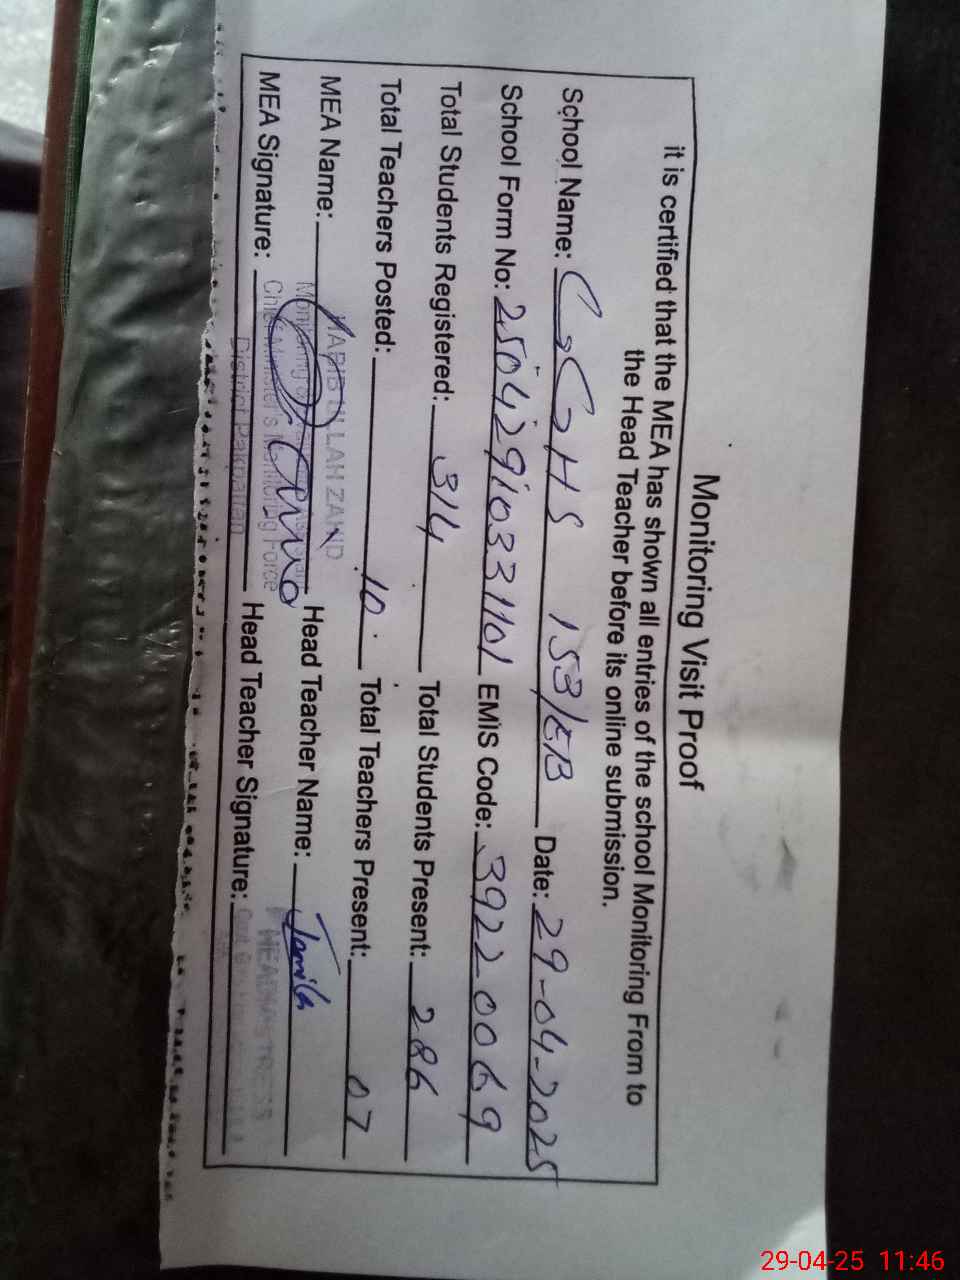 Monitoring Visit Proof
it is certified that the MEA has shown all entries of the school Monitoring From to
the Head Teacher before its online submission.
School Name: GGHS 153/EB Date: 29-04-2025
School Form No: 25042910331101 EMIS Code: 39220069
Total Students Registered: 314 Total Students Present: 286
Total Teachers Posted: 10 Total Teachers Present: 07
MEA Name: HABIB ULLAH Head Teacher Name: Jamila
MEA Signature: Chief Minister's Monitoring Force Head Teacher Signature: HEADMISTRESS
District Pakpattan
29-04-25 11:46